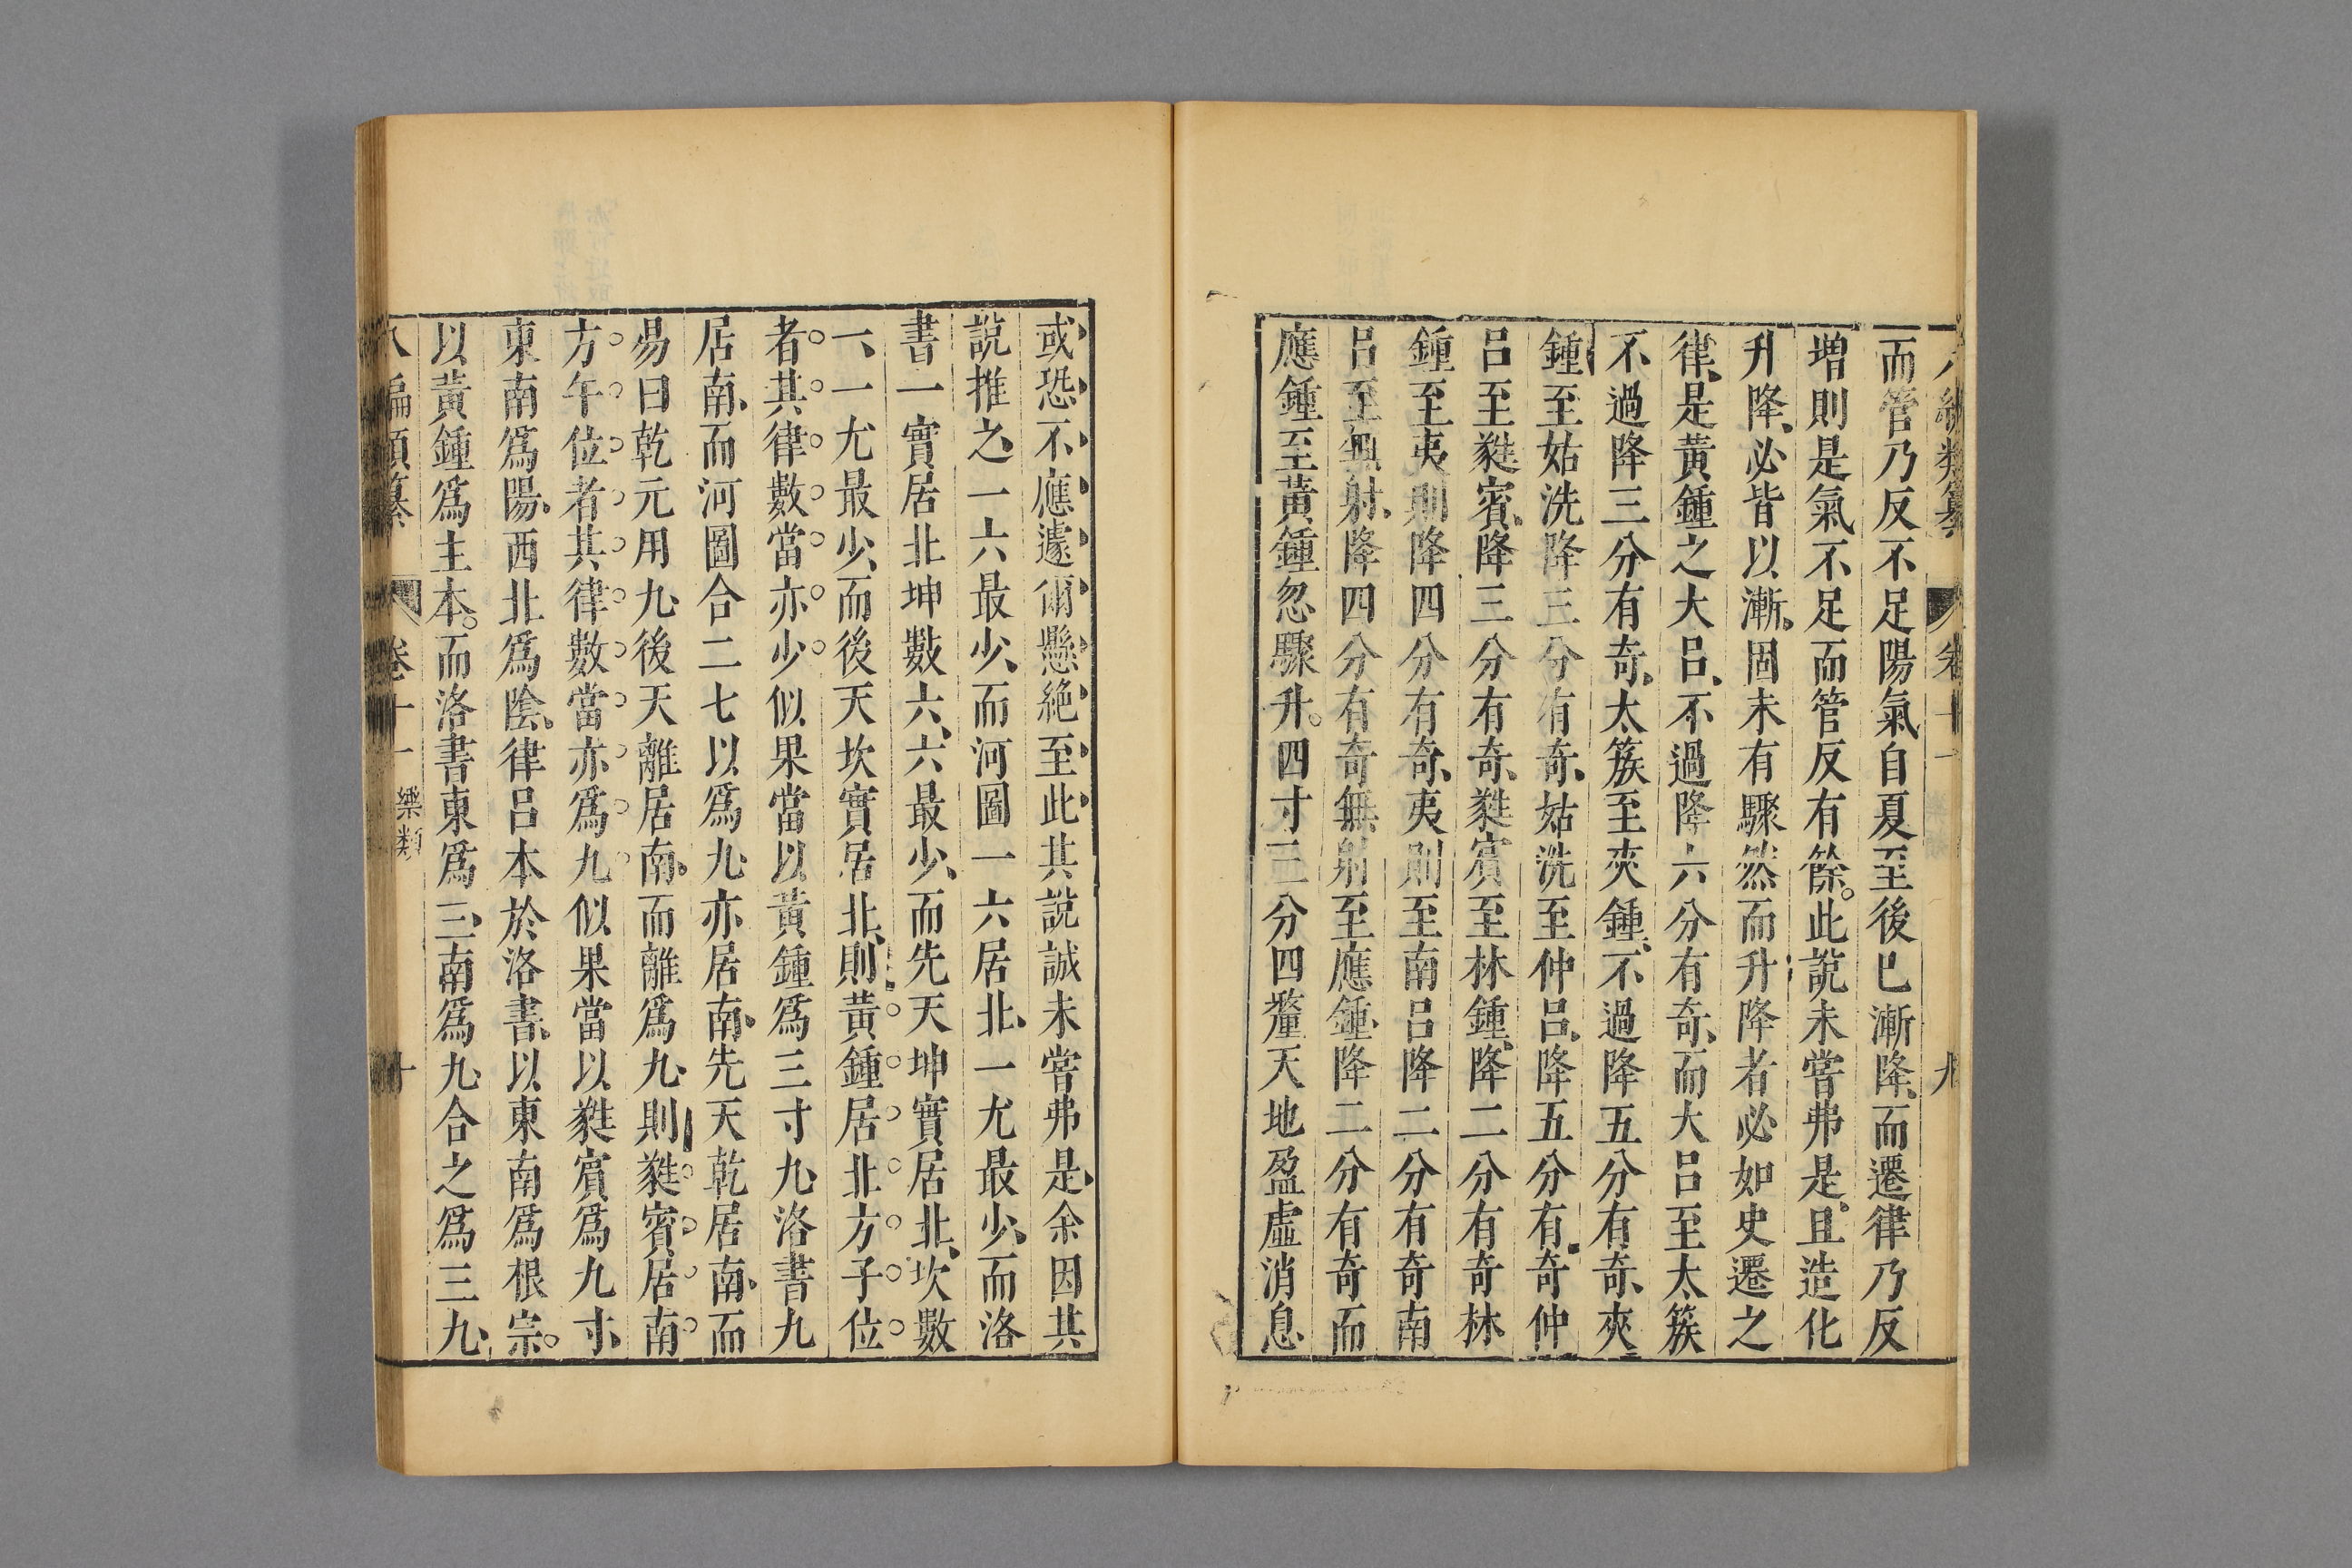 八編類纂 卷十一 九
而管乃反不足陽氣自夏至後已漸降而遷律乃反
增則是氣不足而管反有餘此說未嘗弗是且造化
升降必皆以漸固未有驟然而升降者必如史遷之
律是黃鍾之大呂不過降六分有奇而大呂至太簇
不過降三分有奇太簇至夾鍾不過降五分有奇夾
鍾至姑洗降三分有奇姑洗至仲呂降五分有奇仲
呂至蕤賓降三分有奇蕤賓至林鍾降二分有奇林
鍾至夷則降四分有奇夷則至南呂降二分有奇南
呂至無射降四分有奇無射至應鍾降二分有奇而
應鍾至黃鍾忽驟升四寸三分四釐天地盈虛消息
或恐不應遽爾懸絕至此其說誠未嘗弗是余因其
說推之一六最少而河圖一六居北一尤最少而洛
書一實居北坤數六六最少而先天坤實居北坎數
一一尤最少而後天坎實居北則黃鍾居北方子位
者其律數當亦少似果當以黃鍾爲三寸九洛書九
居南而河圖合二七以爲九亦居南先天乾居南而
易曰乾元用九後天離居南而離爲九則蕤賓居南
方午位者其律數當亦爲九似果當以蕤賓爲九寸
東南爲陽西北爲陰律呂本於洛書以東南爲根宗
以黃鍾爲主本而洛書東爲三南爲九合之爲三九
八編類纂 卷十一 樂類 十